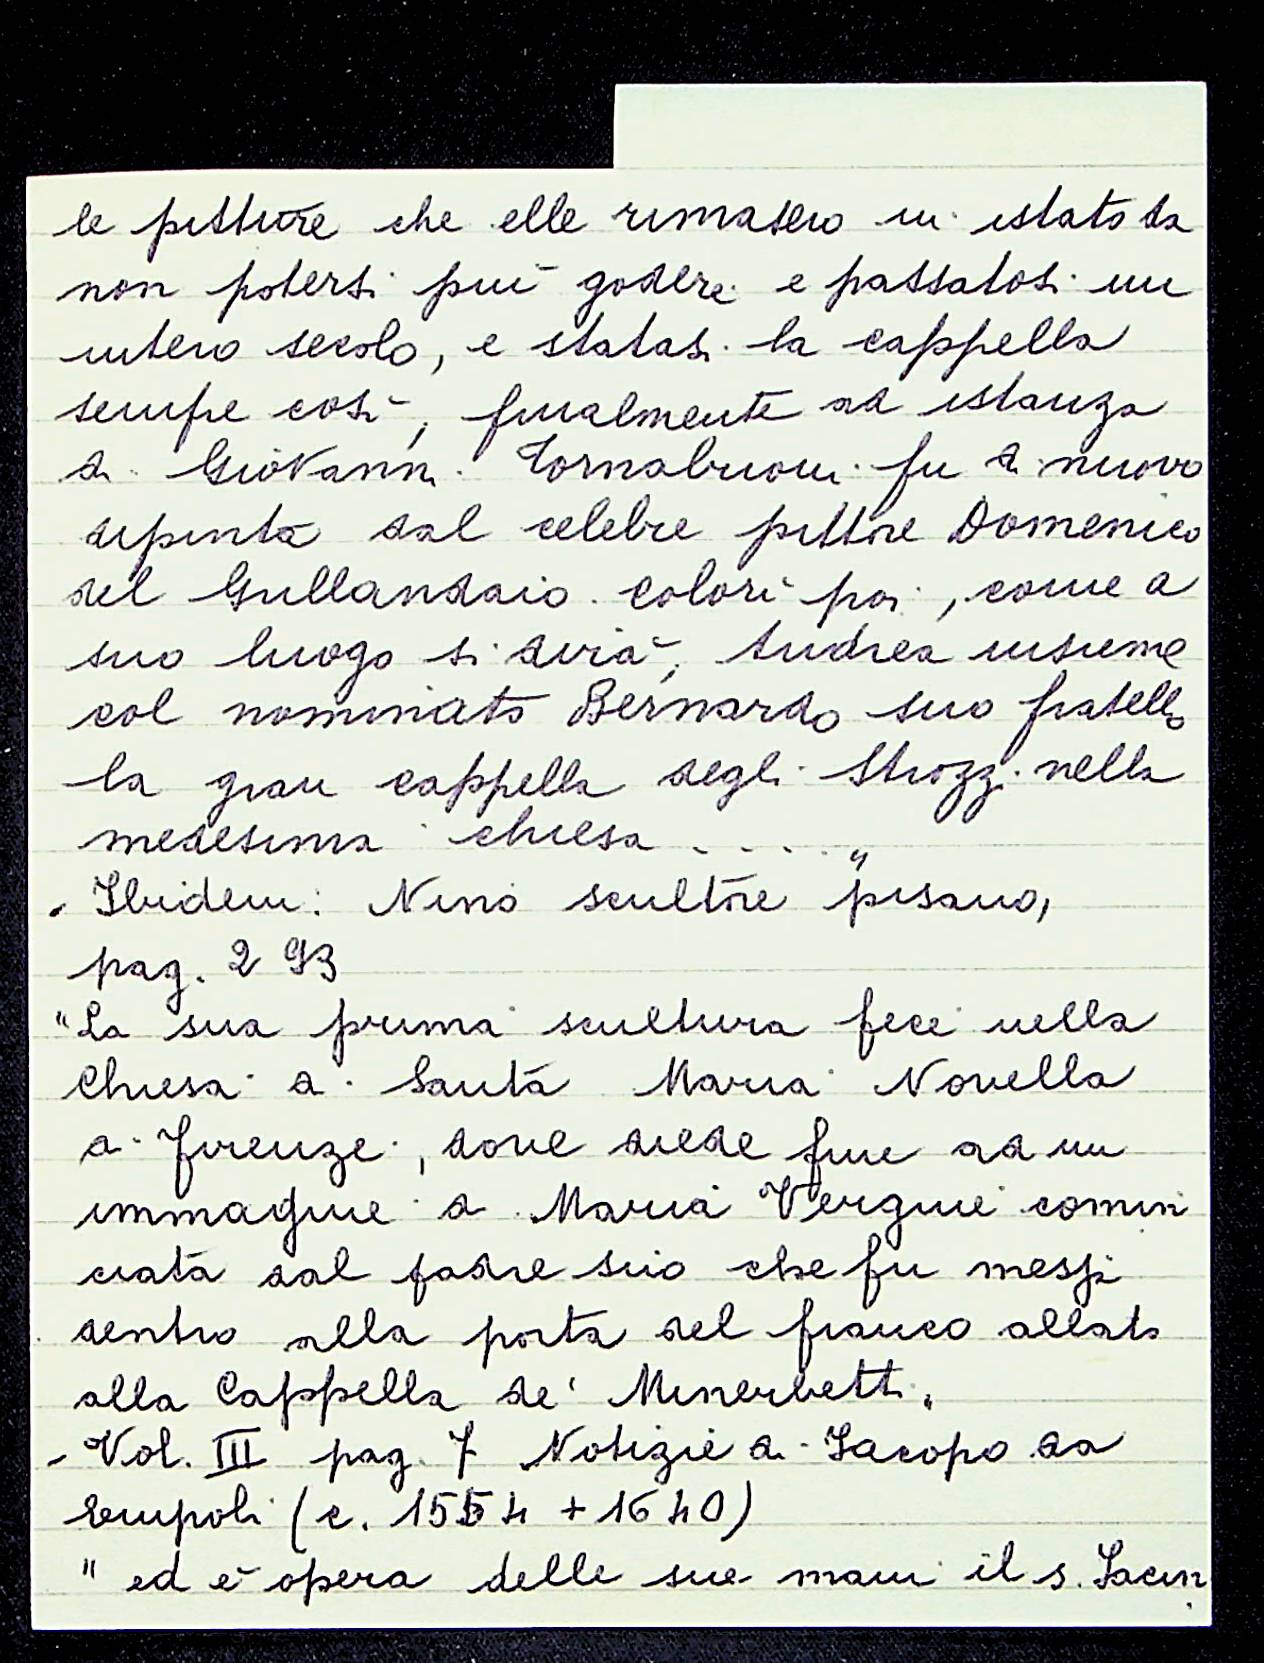 le pitture che elle rimasero in istato da
non potersi più godere e passatosi un
intero secolo, e statasi la cappella
sempre così, finalmente ad istanza
di Giovanni Tornabuoni fu di nuovo
dipinta dal celebre pittore Domenico
del Grillandaio. Colorì poi, come a
suo luogo si dirià, Andrea insieme
col nominato Bernardo suo fratello
la gran cappella degli Strozzi nella
medesima chiesa . . . . "
- Ibidem: Nino scultore pisano,
pag. 293
"La sua prima scultura fece nella
Chiesa di Santa Maria Novella
di Firenze, dove diede fine ad un
immagine di Maria Vergine comin
ciata dal padre suo che fu messa
dentro alla porta del fianco allato
alla Cappella de' Minerbetti.
- Vol. III pag. 7 Notizie di Jacopo da
Empoli (c. 1554 + 1640)
" ed è opera delle sue mani il s. Jacin